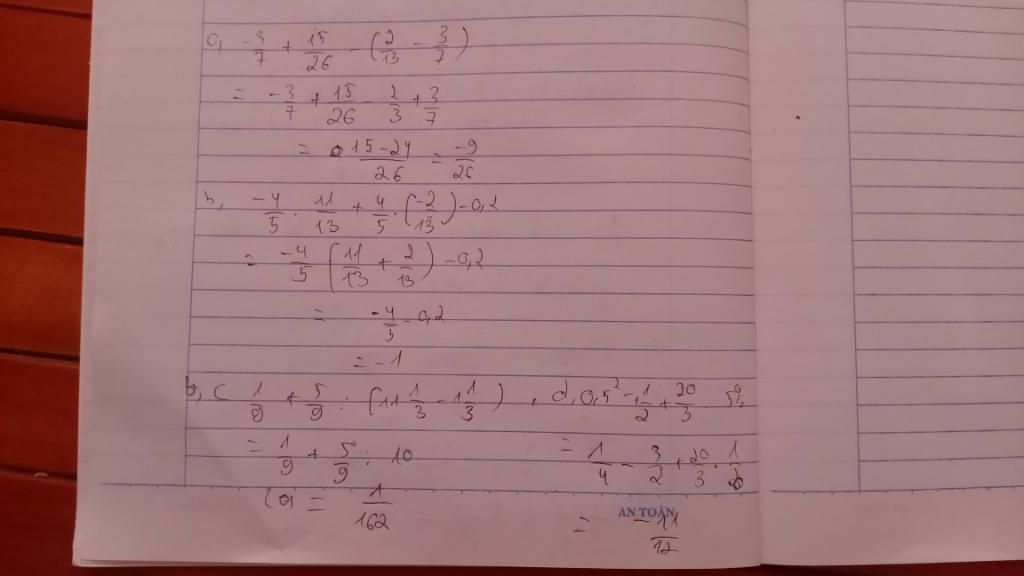 a, -3/7 + 15/26 - (2/13 - 3/7)
= -3/7 + 15/26 - 2/3 + 3/7
= 15-24/26 = -9/26
b, -4/5 . 11/13 + 4/5 . (-2/13) - 0,2
= -4/5 (11/13 + 2/13) - 0,2
= -4/5 - 0,2
= -1
c 1/9 + 5/9 : (11 1/3 - 1 1/3), d, 0,5² - 1 1/2 + 20/3 . 5%
= 1/9 + 5/9 : 10 = 1/4 - 3/2 + 20/3 . 1/20
= 1/162
AN TOÀN
= -11/12